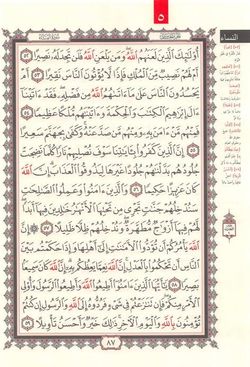 ٥
النساء
أُوْلَٰٓئِكَ ٱلَّذِينَ لَعَنَهُمُ ٱللَّهُ وَمَن يَلْعَنِ ٱللَّهُ فَلَن تَجِدَ لَهُۥ نَصِيرًا
٥٢ أَمْ لَهُمْ نَصِيبٌ مِّنَ ٱلْمُلْكِ فَإِذًا لَّا يُؤْتُونَ ٱلنَّاسَ نَقِيرًا ٥٣ أَمْ
يَحْسُدُونَ ٱلنَّاسَ عَلَىٰ مَآ ءَاتَىٰهُمُ ٱللَّهُ مِن فَضْلِهِۦ فَقَدْ ءَاتَيْنَآ
ءَالَ إِبْرَٰهِيمَ ٱلْكِتَٰبَ وَٱلْحِكْمَةَ وَءَاتَيْنَٰهُم مُّلْكًا عَظِيمًا ٥٤
فَمِنْهُم مَّنْ ءَامَنَ بِهِۦ وَمِنْهُم مَّن صَدَّ عَنْهُ وَكَفَىٰ بِجَهَنَّمَ سَعِيرًا
٥٥ إِنَّ ٱلَّذِينَ كَفَرُوا۟ بِـَٔايَٰتِنَا سَوْفَ نُصْلِيهِمْ نَارًا كُلَّمَا نَضِجَتْ
جُلُودُهُم بَدَّلْنَٰهُمْ جُلُودًا غَيْرَهَا لِيَذُوقُوا۟ ٱلْعَذَابَ إِنَّ ٱللَّهَ
كَانَ عَزِيزًا حَكِيمًا ٥٦ وَٱلَّذِينَ ءَامَنُوا۟ وَعَمِلُوا۟ ٱلصَّٰلِحَٰتِ
سَنُدْخِلُهُمْ جَنَّٰتٍ تَجْرِى مِن تَحْتِهَا ٱلْأَنْهَٰرُ خَٰلِدِينَ فِيهَآ أَبَدًا
لَّهُمْ فِيهَآ أَزْوَٰجٌ مُّطَهَّرَةٌ وَنُدْخِلُهُمْ ظِلًّا ظَلِيلًا ٥٧ إِنَّ ٱللَّهَ
يَأْمُرُكُمْ أَن تُؤَدُّوا۟ ٱلْأَمَٰنَٰتِ إِلَىٰٓ أَهْلِهَا وَإِذَا حَكَمْتُم بَيْنَ
ٱلنَّاسِ أَن تَحْكُمُوا۟ بِٱلْعَدْلِ إِنَّ ٱللَّهَ نِعِمَّا يَعِظُكُم بِهِۦٓ إِنَّ ٱللَّهَ كَانَ سَمِيعًۢا
بَصِيرًا ٥٨ يَٰٓأَيُّهَا ٱلَّذِينَ ءَامَنُوٓا۟ أَطِيعُوا۟ ٱللَّهَ وَأَطِيعُوا۟ ٱلرَّسُولَ وَأُو۟لِى
ٱلْأَمْرِ مِنكُمْ فَإِن تَنَٰزَعْتُمْ فِى شَىْءٍ فَرُدُّوهُ إِلَى ٱللَّهِ وَٱلرَّسُولِ إِن كُنتُمْ
تُؤْمِنُونَ بِٱللَّهِ وَٱلْيَوْمِ ٱلْءَاخِرِ ذَٰلِكَ خَيْرٌ وَأَحْسَنُ تَأْوِيلًا ٥٩
٨٧